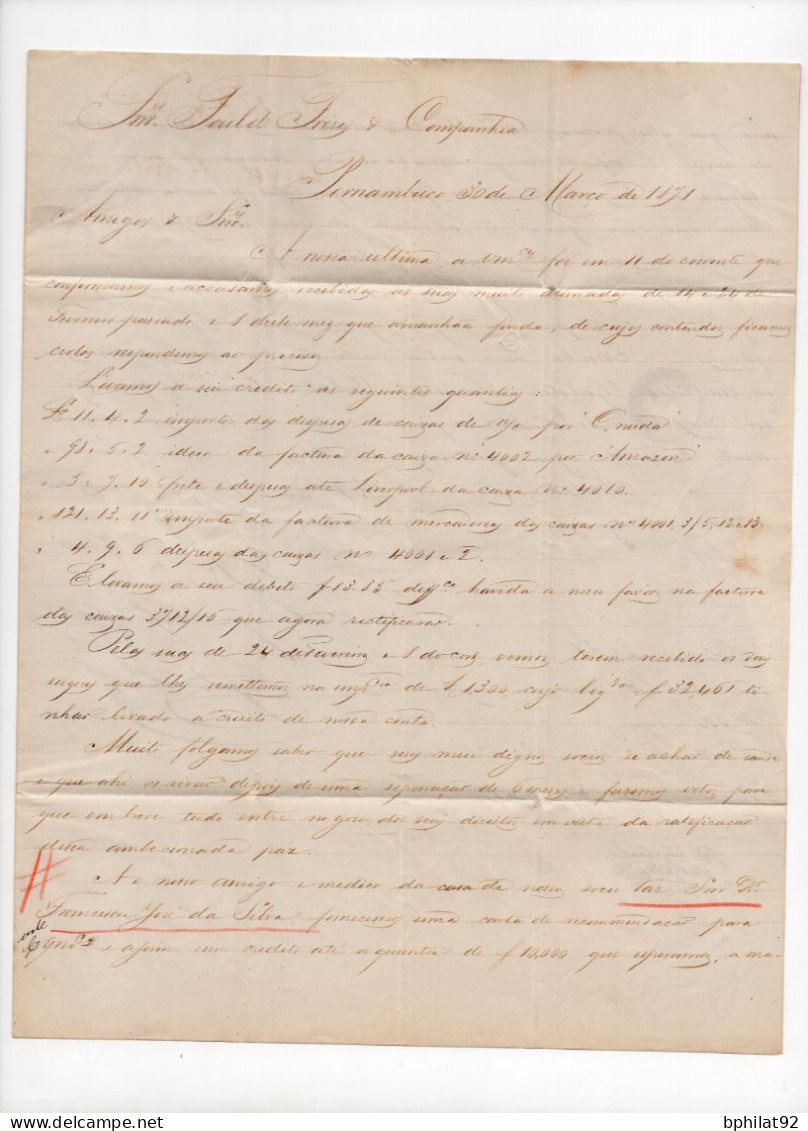 Snrs. Fould Frères & Companhia
Pernambuco 30 de Março de 1871
Amigos & Snrs.
A nossa ultima a Vmces foi em 11 do corrente que
confirmamos e accusamos recebidas as suas muito estimadas de 14 e 24 de
Fevereiro passado e 8 deste mez que amanhaã finda, de cujos contendos ficamos
certos respondemos ao preciso.
Levamos a seu credito as seguintes quantias:
11. 4. 2 importe das despesas de caixas de por Oneida
" 98. 5. 2 idem da factura da caixa No. 4002 por Amazon
" 5. 7. 10 frete e despesas até Liverpool da caixa No. 4010.
" 121. 13. 11 importe da factura de mercadorias das caixas No. 4001, 3/5, 12 e 13.
" 4. 9. 6 despesas das caixas No. 4001 e 2.
E levamos a seu debito f 13.85 havida a nosso favor na factura
das caixas que agora rectificaraõ.
Pelas suas de 24 de Fevereiro e 8 do corre vemos terem recebido os dous
saques que lhes remettemos na de £ 1300, cujo f 32,461 ti
nhaõ levado a credito de nossa conta.
Muito folgamos saber que seus mui dignos socios se achaõ de saude
e que ahi os depois de uma separaçaõ de 6 mezes e fazemos votos para
que em breve tudo entre no goso dos seus direitos em vista da ratificaçaõ
dessa ambicionada páz.
Ao nosso amigo e medico da casa de nosso socio Vaz, Snr Dr.
Francisco José da Silva fornecemos uma carta de recommendaçaõ para
Vmces e assim um credito até a quantia de f 10,000 que esperamos, a ma-
bphilat92